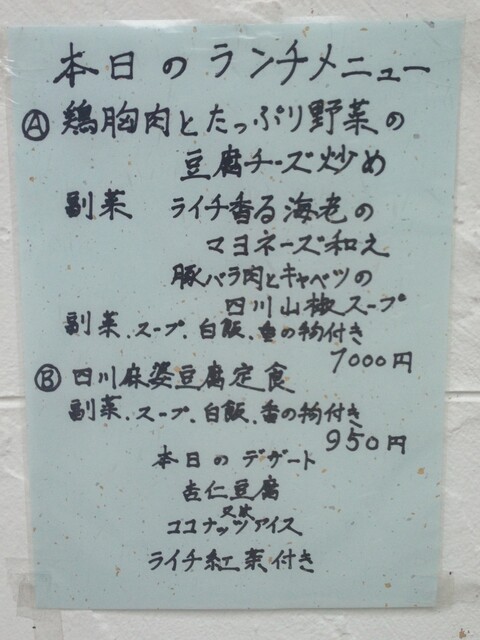 本日のランチメニュー
Ⓐ 鶏胸肉とたっぷり野菜の
豆腐チーズ炒め
副菜 ライチ香る海老の
マヨネーズ和え
豚バラ肉とキャベツの
四川山椒スープ
副菜、スープ、白飯、香の物付き
1000円
Ⓑ 四川麻婆豆腐定食
副菜、スープ、白飯、香の物付き
950円
本日のデザート
杏仁豆腐
又は
ココナッツアイス
ライチ紅茶付き